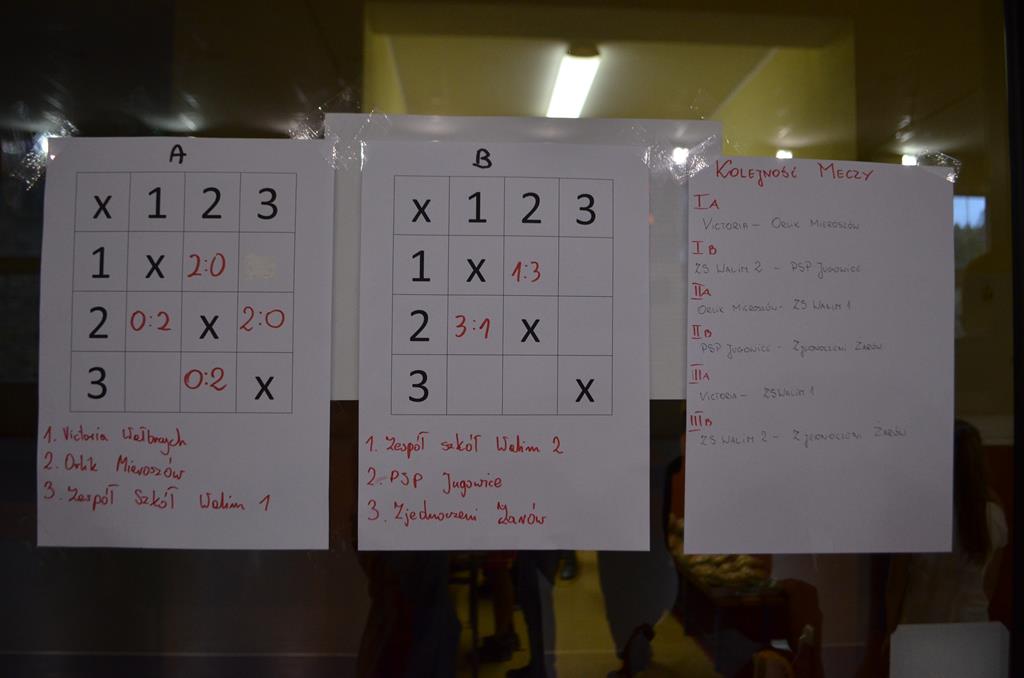 A
x 1 2 3
1 x 2:0
2 0:2 x 2:0
3 0:2 x
1. Victoria Wałbrzych
2. Orlik Mieroszów
3. Zespół Szkół Walim 1
B
x 1 2 3
1 x 1:3
2 3:1 x
3 x
1. Zespół szkół Walim 2
2. PSP Jugowice
3. Zjednoczeni Żarów
KOLEJNOŚĆ MECZY
I A
VICTORIA - ORLIK MIEROSZÓW
I B
ZS WALIM 2 - PSP JUGOWICE
II A
ORLIK MIEROSZÓW - ZS WALIM 1
II B
PSP JUGOWICE - ZJEDNOCZENI ŻARÓW
III A
VICTORIA - ZS WALIM 1
III B
ZS WALIM 2 - ZJEDNOCZENI ŻARÓW